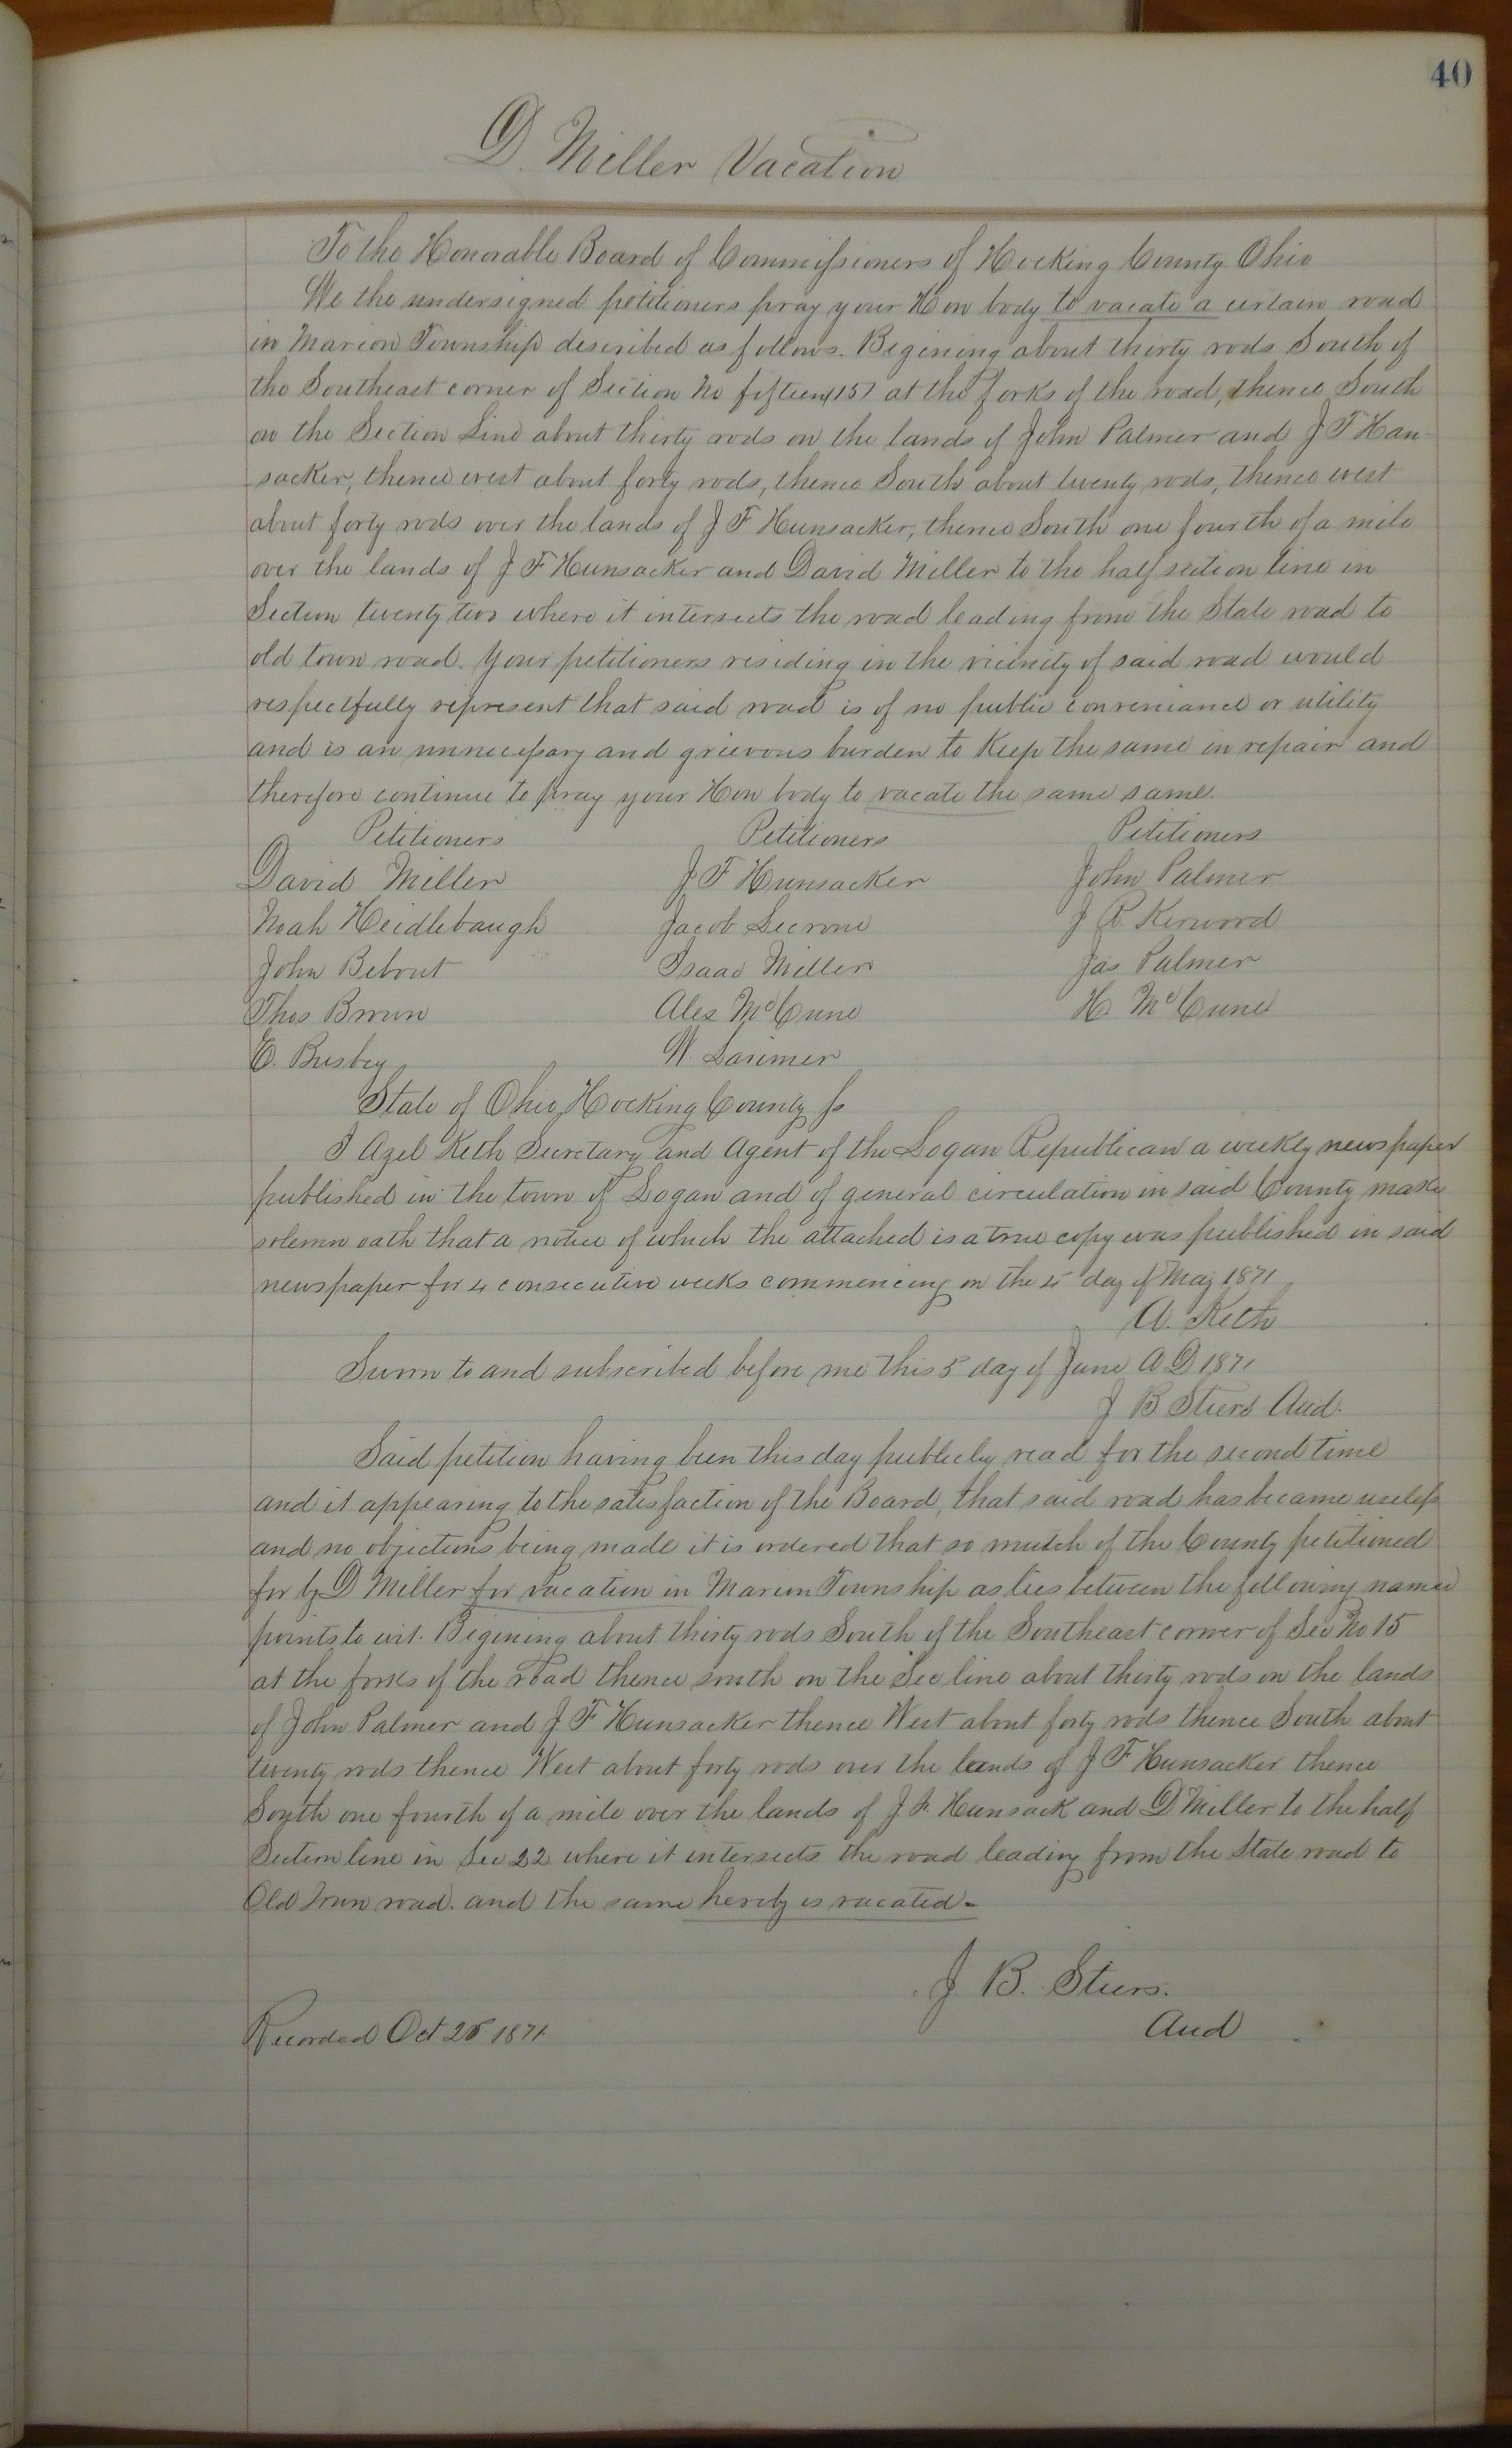 40
D. Miller Vacation
To the Honorable Board of Commissioners of Hocking County Ohio
We the undersigned petitioners pray your Hon body to vacate a certain road
in Marion Township described as follows. Begining about thirty rods South of
the Southeast corner of Section No fifteen (15) at the forks of the road, thence South
on the Section Line about thirty rods on the lands of John Palmer and J F Han
sacker, thence west about forty rods, thence South about twenty rods, thence west
about forty rods over the lands of J F Hunsacker, thence South one fourth of a mile
over the lands of J F Hunsacker and David Miller to the half section line in
Section twenty two where it intersects the road leading from the State road to
old town road. Your petitioners residing in the vicinity of said road would
respectfully represent that said road is of no public conveniance or utility
and is an unnecessary and grievous burden to Keep the same in repair and
therefore continue to pray your Hon body to vacate the same same.
Petitioners Petitioners Petitioners
David Miller J F Hunsacker John Palmer
Noah Heidlebaugh Jacob Secrone J R. Kerwood
John Bebout Isaac Miller Jas Palmer
Thos Brown Alex McCune H McCune
E. Busbey W. Larimer
State of Ohio, Hocking County ss
I Azel Keth Secretary and Agent of the Logan Republican a weekly newspaper
published in the town of Logan and of general circulation in said County make
solemn oath that a notice of which the attached is a true copy was published in said
newspaper for 4 consecutive weeks commencing on the 4 day of May 1871
A. Keth
Sworn to and subscribed before me this 5 day of June A D 1871
J B Stiers Aud.
Said petition having been this day publicly read for the second time
and it appearing to the satisfaction of the Board, that said road has became useless
and no objections being made it is ordered that so mutch of the County petitioned
for by D Miller for vacation in Marion Township as lies between the following named
points to wit. Begining about thirty rods South of the Southeast corner of Sec No 15
at the forks of the road thence south on the Sec line about thirty rods on the lands
of John Palmer and J. F Hunsacker thence West about forty rods thence South about
twenty rods thence West about forty rods over the lands of J F Hunsacker thence
South one fourth of a mile over the lands of J F. Hunsack and D Miller to the half
Section line in Sec 22 where it intersects the road leading from the State road to
Old Town road. and the same hereby is vacated.
J B. Stiers.
Recorded Oct 25 1871. Aud